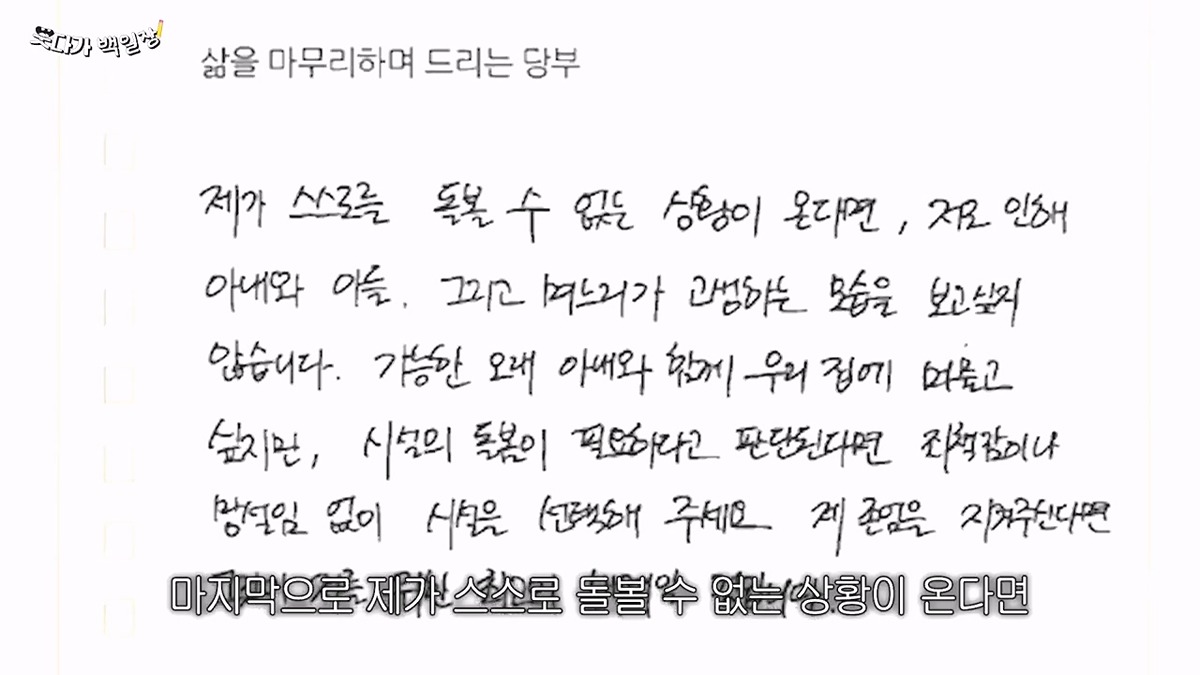 웃다가 백일장
삶을 마무리하며 드리는 당부
제가 스스로를 돌볼 수 없는 상황이 온다면, 저로 인해
아내와 아들. 그리고 며느리가 고생하는 모습을 보고싶지
않습니다. 가능한 오래 아내와 함께 우리 집에 머물고
싶지만, 시설의 돌봄이 필요하다고 판단된다면 죄책감이나
망설임 없이 시설을 선택해 주세요 제 존엄을 지켜주신다면
마지막으로 제가 스스로 돌볼 수 없는 상황이 온다면